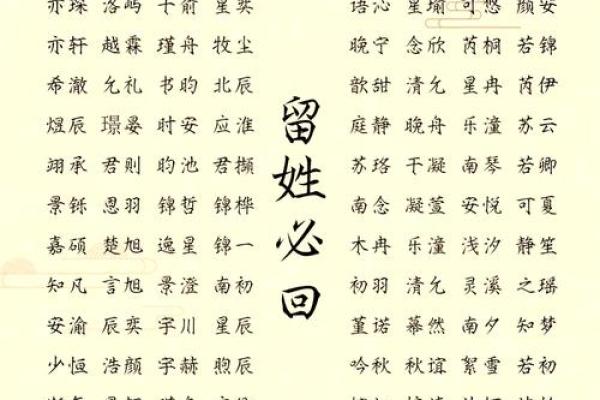 亦琛 洛屿 星奕
亦轩 越霖 瑾舟 牧尘
希澈 允礼 书昀 北辰
煜辰 璟晏 时安 应淮
翊承 君则 昀池 君撷
景铄 恩羽 锦哲 锦桦
嘉硕 楚旭 逸星 锦一
知凡 言旭 景澄 南初
安渝 辰奕 宇川 星辰
少恒 浩颜 宇赫 煦辰
留姓必回
语沁 星瑜 可悠 颜安
晚宁 念欣 芮桐 若锦
歆甜 清允 星冉 芮伊
庭静 晚舟 乐潼 苏云
苏珞 千凝 南琴 若卿
南念 凝萱 安悦 可夏
木冉 乐潼 浅汐 静笙
初羽 清允 灵溪 之瑶
堇诺 慕然 南夕 知梦
吟秋 秋谊 絮雪 若初